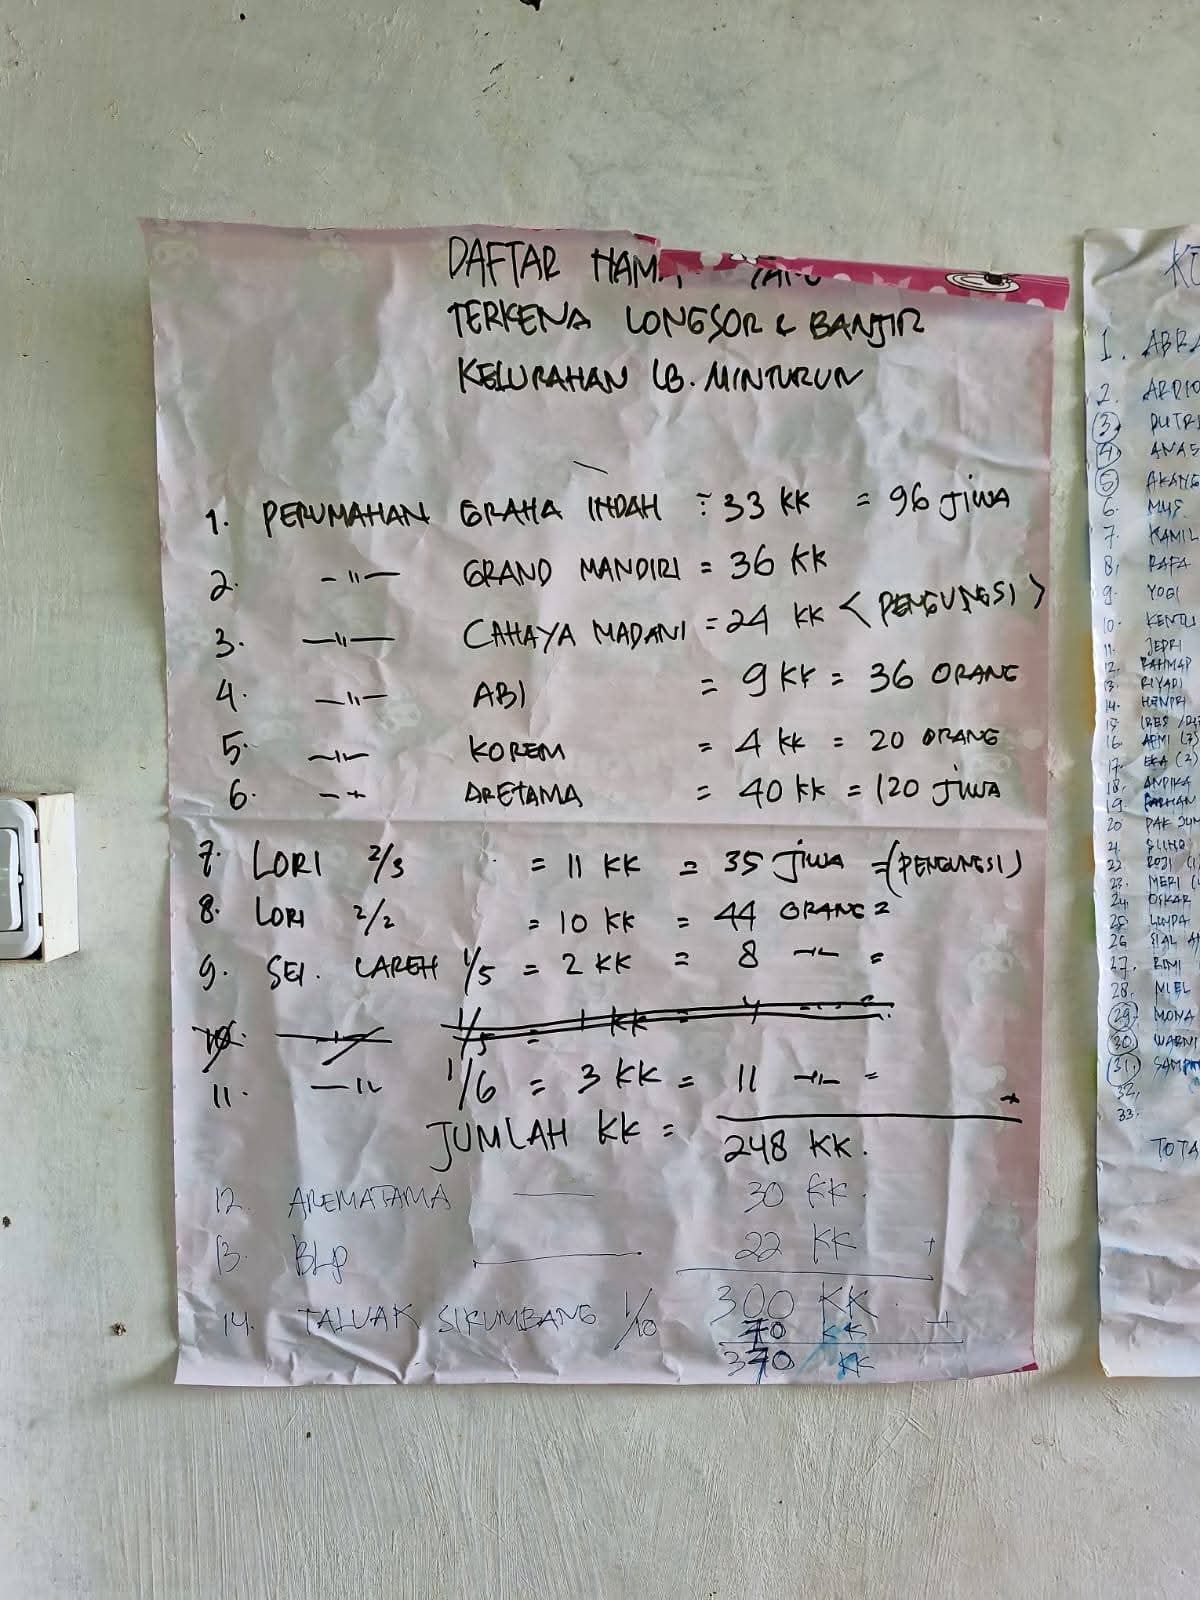 DAFTAR
TERKENA LONGSOR & BANJIR
KELURAHAN LB. MINTURUN
1. PERUMAHAN GRAHA INDAH = 33 KK = 96 JIWA
2. -"- GRAND MANDIRI = 36 KK
3. -"- CAHAYA MADANI = 24 KK < PENGUNGSI >
4. -"- ABI = 9 KK = 36 ORANG
5. -"- KOREM = 4 KK = 20 ORANG
6. -"- ARETAMA = 40 KK = 120 JIWA
7. LORI 2/3 = 11 KK = 35 JIWA = (PENGUNGSI)
8. LORI 2/2 = 10 KK = 44 ORANG =
9. SEI. LAREH 1/5 = 2 KK = 8 -"- =
10. -"- 1/5 = 1 KK = 4
11. -"- 1/6 = 3 KK = 11 -"- =
JUMLAH KK = 248 KK.
12. AREMATAMA 30 KK.
13. BLP 22 KK +
300 KK
14. TALUAK SIKUMBANG 1/10 70 KK +
370 KK
1.
2.
3.
4.
5.
6. MUS.
7. KAMIL
8. RAFA
9. YOGI
10.
11. JEPRI
12. RAHMAD
13. RIYADI
14. HENDRI
15.
16.
17. EKA
18. ANDIKA
19. FARHAN
20. PAK
21.
22. ROJI
23. MERI
24. OSKAR
25.
26.
27.
28. MIEL
29. MONA
30.
31.
32.
33.